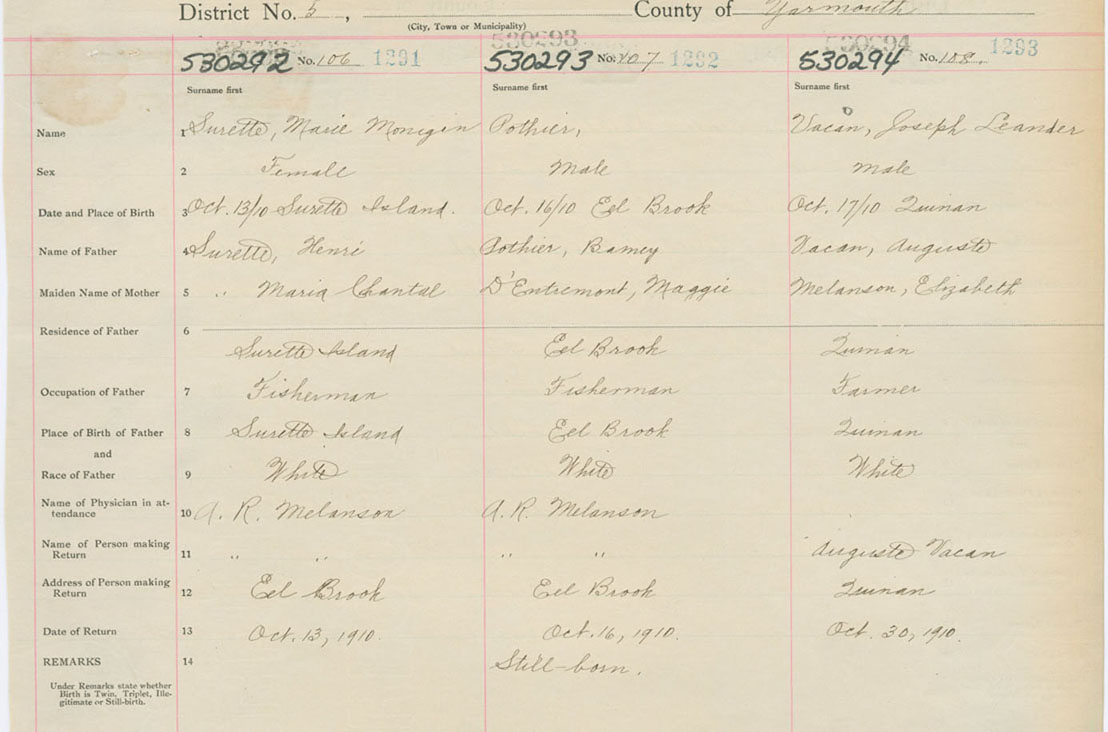 District No. 5, County of Yarmouth
(City, Town or Municipality)
530292 530293 530294
530292 No. 106 1291 530293 No. 107 1292 530294 No. 108. 1293
Surname first Surname first Surname first
Name 1 Surette, Marie Monigin Pothier, Vacon, Joseph Leander
Sex 2 Female Male Male
Date and Place of Birth 3 Oct. 13/10 Surette Island. Oct. 16/10 Eel Brook Oct. 17/10 Quinan
Name of Father 4 Surette, Henri Pothier, Barney Vacan, Auguste
Maiden Name of Mother 5 " Maria Chantal D'Entremont, Maggie Melanson, Elizabeth
Residence of Father 6
Surette Island Eel Brook Quinan
Occupation of Father 7 Fisherman Fisherman Farmer
Place of Birth of Father 8 Surette Island Eel Brook Quinan
and
Race of Father 9 White White White
Name of Physician in at-
tendance 10 A. R. Melanson A. R. Melanson
Name of Person making
Return 11 " " " " Auguste Vacan
Address of Person making
Return 12 Eel Brook Eel Brook Quinan
Date of Return 13 Oct. 13, 1910. Oct. 16, 1910. Oct. 30, 1910.
REMARKS 14 Still-born.
Under Remarks state whether
Birth is Twin, Triplet, Ille-
gitimate or Still-birth.